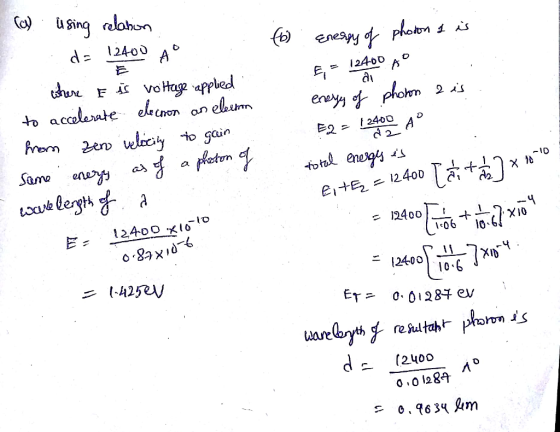 (a) using relation
d = 12400 / E A°
where E is voltage applied
to accelerate elecnon an electron
from zero velocity to gain
same energy as of a photon of
wavelength of λ
E = 12400 × 10^-10 / 0.87 × 10^-6
= 1.425eV
(b) energy of photon 1 is
E1 = 12400 / λ1 A°
energy of photon 2 is
E2 = 12400 / λ2 A°
total energy is
E1+E2 = 12400 [1/λ1 + 1/λ2] × 10^-10
= 12400 [1/1.06 + 1/10.6] × 10^-4
= 12400 [11/10.6] × 10^-4
ET = 0.01287 eV
wavelength of resultant photon is
d = 12400 / 0.01287 A°
= 0.9634 μm